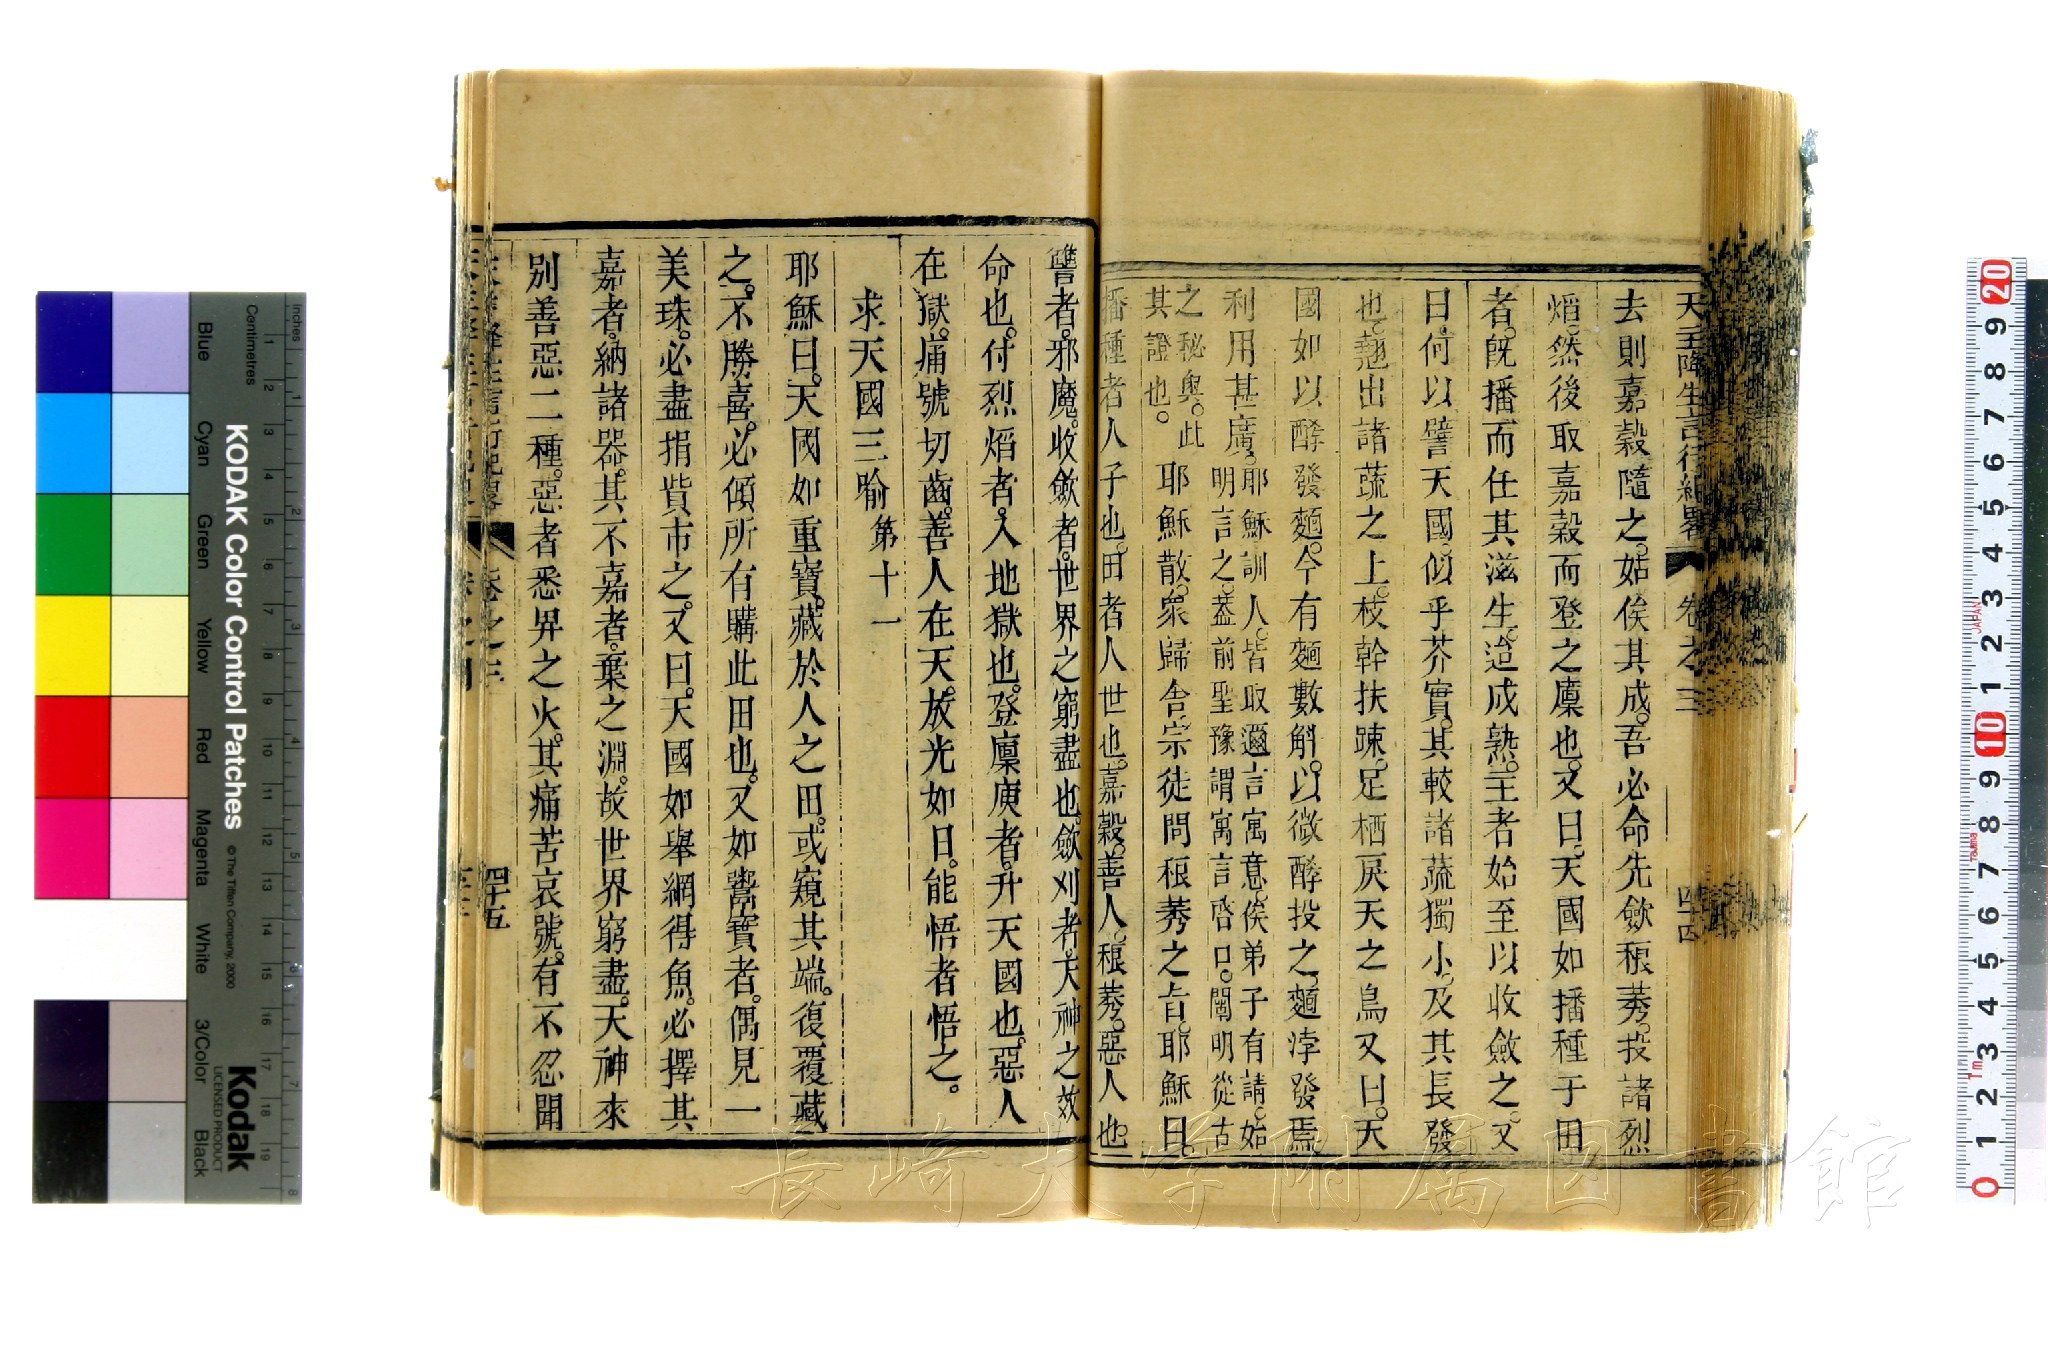 天主降生言行紀畧 卷之三 四十四
去則嘉穀隨之。姑俟其成。吾必命先歛稂莠。投諸烈
熖。然後取嘉穀而登之廩也。又曰。天國如播種于田
者。旣播而任其滋生。迨成熟。主者始至以收斂之。又
曰。何以譬天國。似乎芥實。其較諸蔬獨小。及其長發
也。翹出諸蔬之上。枝幹扶踈。足栖戾天之鳥又曰。天
國如以酵發麵。今有麵數斛。以微酵投之。麵浡發焉。
利用甚廣。耶穌訓人。皆取邇言寓意。俟弟子有請。始
明言之。葢前聖豫謂寓言啓口。闡明從古
之秘奥。此
其證也。
耶穌散。衆歸舍。宗徒問稂莠之旨。耶穌曰。
播種者人子也。田者人世也。嘉穀。善人。稂莠。惡人也。
讐者。邪魔。收歛者。世界之窮盡也。歛刈者。天神之效
命也。付烈熖者。入地獄也。登廩庾者。升天國也。惡人
在獄。痛號切齒。善人在天。放光如日。能悟者悟之。
求天國三喻 第十一
耶穌曰。天國如重寶。藏於人之田。或窺其端。復覆藏
之。不勝喜。必傾所有購此田也。又如鬻寶者。偶見一
美珠。必盡捐貲市之。又曰。天國如舉網得魚。必擇其
嘉者。納諸器。其不嘉者。棄之淵。故世界窮盡。天神來
別善惡二種。惡者悉畀之火。其痛苦哀號。有不忍聞
天主降生言行紀畧 卷之三 四十五
KODAK Color Control Patches
© The Tiffen Company, 2000
Kodak
LICENSED PRODUCT
Inches
Centimetres
Blue Cyan Green Yellow Red Magenta White 3/Color Black
JAPAN
Tajima
1m
長崎大学附属図書館